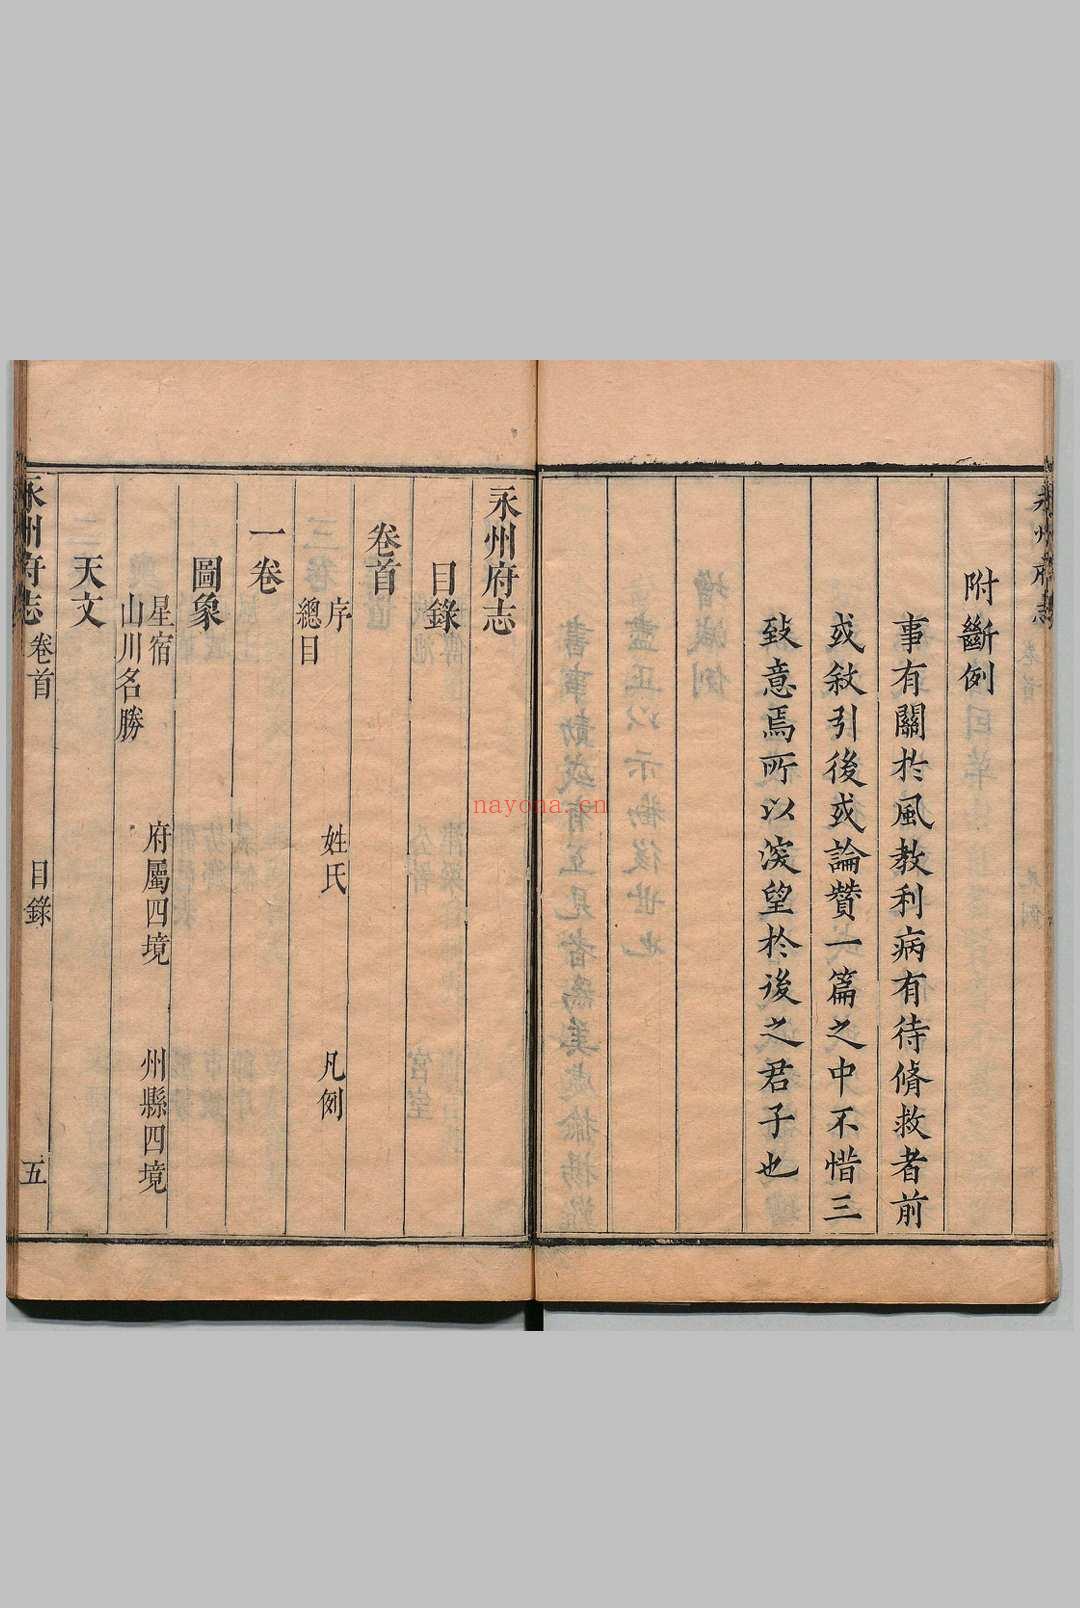 永州府志
附斷例
事有關於風教利病有待脩救者前
或敘引後或論贊一篇之中不惜三
致意焉所以深望於後之君子也
永州府志
目錄
卷首
序 姓氏 凡例
總目
一卷
圖象
星宿 府屬四境 州縣四境
山川名勝
天文
永州府志 卷首 目錄 五
nayona.cn